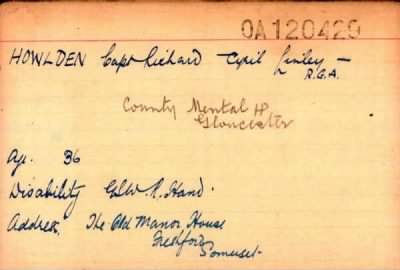 OA120429
HOWLDEN Capt Richard Cyril Linley -
R.G.A.
County Mental Hp
Gloucester
Age. 36
Disability GSW. R. Hand.
Address, The Old Manor House
Somerset.